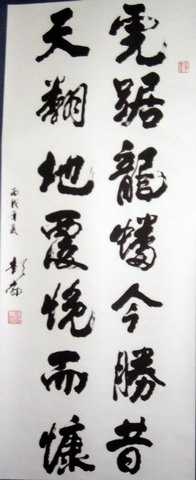 虎踞龍蟠今勝昔
天翻地覆慨而慷
丙戌年夏